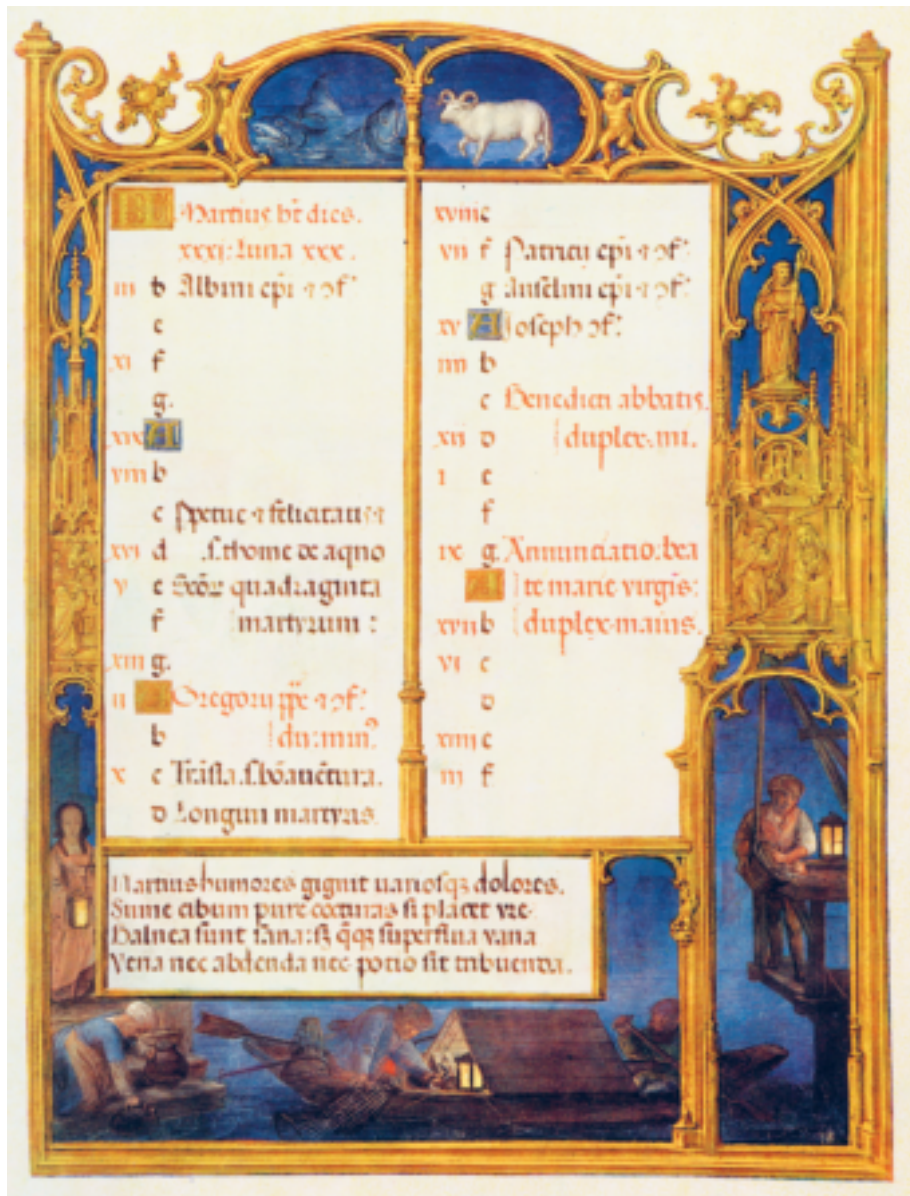 Martius ht dies.
xxxi: luna xxx.
iii b Albini epi ⁊ ɔf.
c
xi f
g.
xix A
viii b
c Ppetue ⁊ felicitatis
xvi d .s. thome de aqno
v e quadraginta
f martyrum :
xiii g.
ii Gregorii ppe ⁊ ɔf.
b du: min
x c .s. bōauētura.
d Longini martyris
xviii c
vii f Patricii epi ⁊ ɔf.
g Anselmi epi ⁊ ɔf.
xv A Joseph ɔf.
iiii b
c Benedicti abbatis.
xii d duplex. mi.
i e
f
ix g. Annunciatio: bea
A te marie virgis:
xvii b duplex. maius.
vi c
d
xiiii e
iii f
Martius humores gignit uariosqȝ dolores.
Sume cibum pure cocturas si placet vre.
Balnea sunt sana: sȝ q̄qȝ superflua vana
Vena nec abdenda nec potio sit tribuenda.